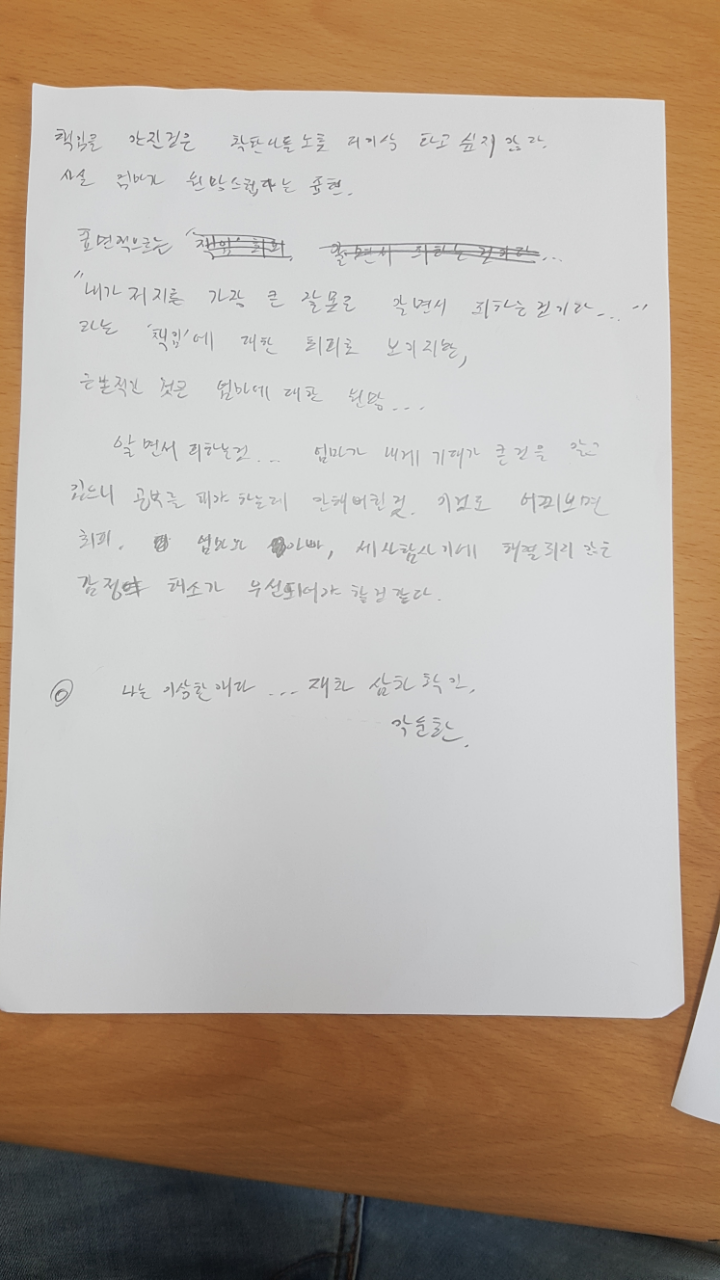 책임을 가진것은 싶지 않다.
사실 엄마가 원망스럽다는 표현.
표면적으로는 "책임' 회피, 알면서 피하는 것이라...
"내가 저지른 가장 큰 잘못은 알면서 피하는 것이라...."
라는 '책임'에 대한 회피로 보이지만,
근본적인 것은 엄마에 대한 원망....
알면서 피하는것... 엄마가 내게 기대가 큰 것을 알고
있으니 공부를 해야 하는데 안해버린 것. 이것도 어찌보면
회피. 엄마와 아빠, 세 사람 사이에 해결되지 않은
감정 해소가 우선되어야 할 것 같다.
나는 이상한 애다... 확인.